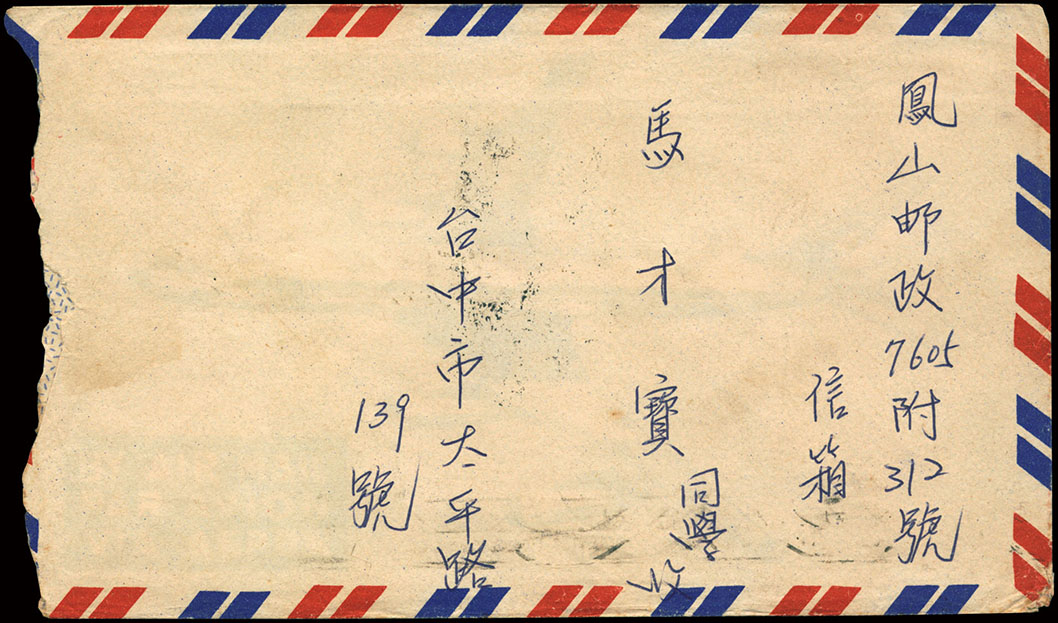 鳳山邮政7605附312號
信箱
馬才寶同學收
台中市太平路
139號